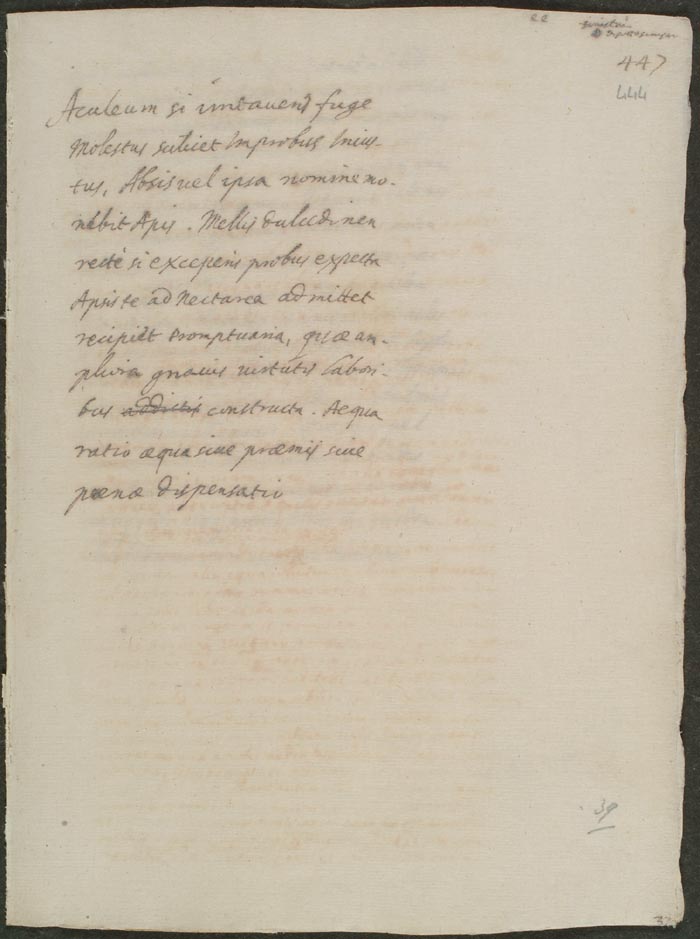 22
447
444
Aculeum si incaveris fuge
Molestus subiet Improbus Inius-
tus, Absis vel ipsa nomine mo-
nebit Apis. Mellis dulcedinen
recte si exceperis probus expecta
Apis te ad Nectarea admittet
recipiet Promptuaria, quæ am-
pliora gnavis virtutis labori-
bus addictis constructa. Aequa
ratio æqua sive præmij sive
pœnæ dispensatio
39